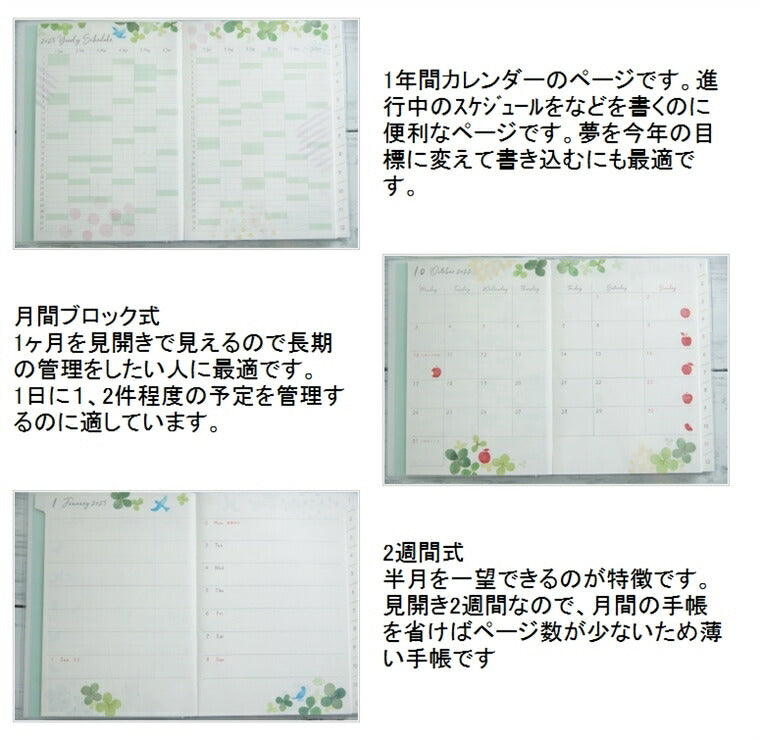 2023 Yearly Schedule
1年間カレンダーのページです。進
行中のｽｹｼﾞｭｰﾙをなどを書くのに
便利なページです。夢を今年の目
標に変えて書き込むにも最適で
す。
月間ブロック式
1ヶ月を見開きで見えるので長期
の管理をしたい人に最適です。
1日に1、2件程度の予定を管理す
るのに適しています。
10 October 2022
Monday Tuesday Wednesday Thursday Friday Saturday Sunday
1 January 2023
2 Mon
3 Tue
4 Wed
5 Thu
6 Fri
7 Sat
1 Sun
8 Sun
2週間式
半月を一望できるのが特徴です。
見開き2週間なので、月間の手帳
を省けばページ数が少ないため薄
い手帳です